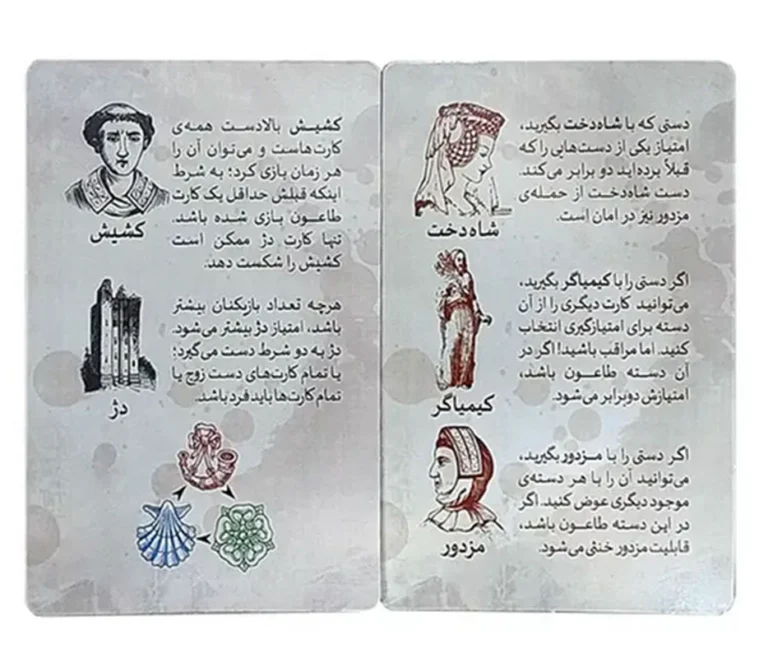 دستی که با شاه‌دخت بگیرید،
امتیاز یکی از دست‌هایی را که
قبلاً برده‌اید دو برابر می‌کند.
دست شاه‌دخت از حمله‌ی
مزدور نیز در امان است.
شاه‌دخت
اگر دستی را با کیمیاگر بگیرید،
می‌توانید کارت دیگری را از آن
دسته برای امتیازگیری انتخاب
کنید. اما مراقب باشید! اگر در
آن دسته طاعون باشد،
امتیازش دوبرابر می‌شود.
کیمیاگر
اگر دستی را با مزدور بگیرید،
می‌توانید آن را با هر دسته‌ی
موجود دیگری عوض کنید. اگر
در این دسته طاعون باشد،
قابلیت مزدور خنثی می‌شود.
مزدور
کشیش بالادست همه‌ی
کارت‌هاست و می‌توان آن را
هر زمان بازی کرد؛ به شرط
اینکه قبلش حداقل یک کارت
طاعون بازی شده باشد.
تنها کارت دژ ممکن است
کشیش را شکست دهد.
کشیش
هرچه تعداد بازیکنان بیشتر
باشد، امتیاز دژ بیشتر می‌شود.
دژ به دو شرط دست می‌گیرد؛
یا تمام کارت‌های دست زوج یا
تمام کارت‌ها باید فرد باشد.
دژ